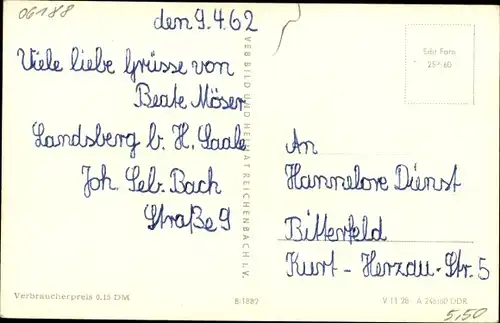 06188
den 9.4.62
Viele liebe Grüsse von
Beate Möser
Landsberg b. H. Saale
Joh. Seb. Bach
Straße 9
VEB BILD UND HEIMAT REICHENBACH I. V.
Echt Foto
An
Hannelore Dienst
Bitterfeld
Kurt - Herzau - Str. 5
Verbraucherpreis 0,15 DM
B1882
V 11 28 A 246/60 DDR
5,50